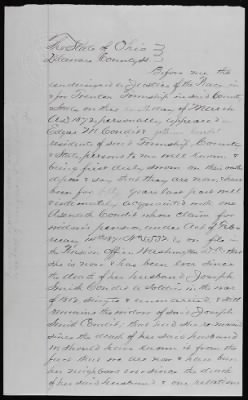 The State of Ohio
Delaware County SS
Before me the
undersigned a Justice of the Peace in
& for Trenton Township in said County
& State on this day of March
A.D. 1872, personally appeared
Edgar M. Condit &
residents of said Township, County
& State, persons to me well known &
being first duly sworn on their oath
depose & say that they are now & have
been for fifty years last past well
& intimately acquainted with one
Asenath Condit whose claim for
widow's pension, under act of Feb-
ruary 14th 1871, No. is on file in
the Pension Office Washington D.C. that
she is now & has been ever since
the death of her husband Joseph
Smith Condit a Soldier in the war
of 1812, single & unmarried, & still
remains the widow of said Joseph
Smith Condit, that had she remarried
since the death of her said husband
we should have known it from the
fact that we are now & have been
her neighbors ever since the death
of her said husband & our relations